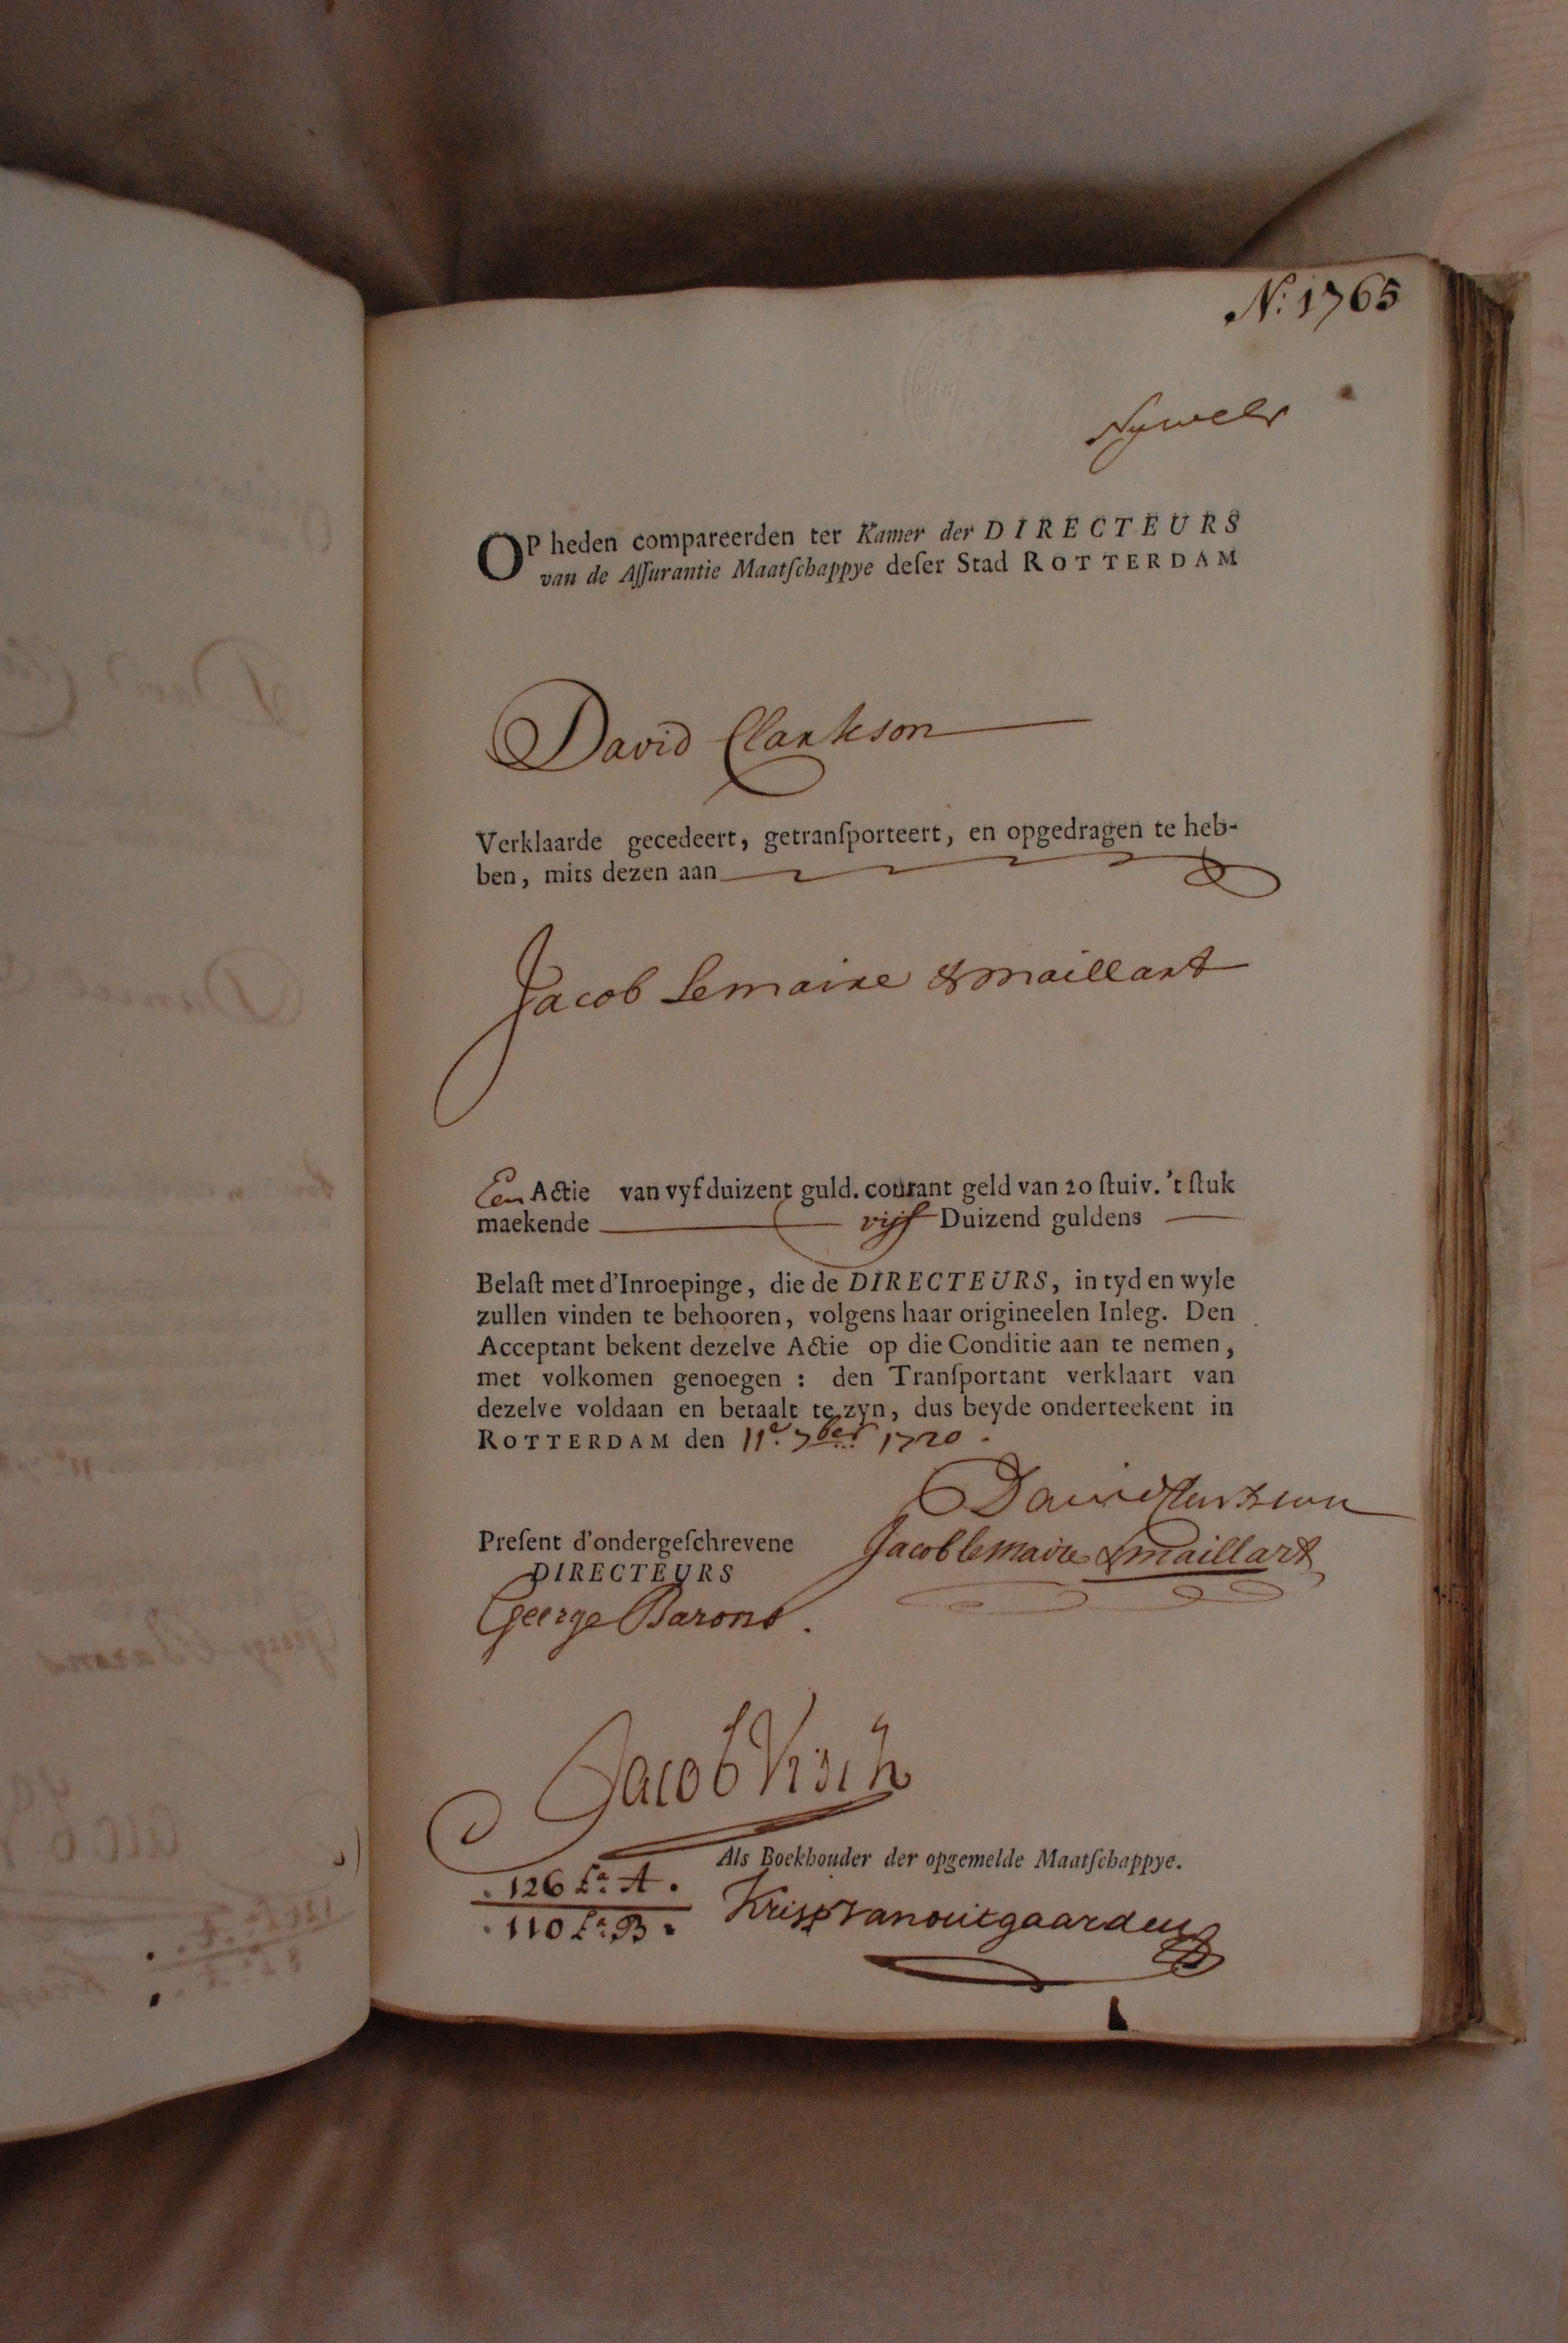 N: 1765
Nywelr
OP heden compareerden ter Kamer der DIRECTEURS
van de Aſſurantie Maatſchappye deſer Stad ROTTERDAM
David Clarkson
Verklaarde gecedeert, getranſporteert, en opgedragen te heb-
ben, mits dezen aan
Jacob Lemaire & maillart
Een Actie van vyf duizent guld. courant geld van 20 ſtuiv. 't ſtuk
maekende vijf Duizend guldens
Belaſt met d'Inroepinge, die de DIRECTEURS, in tyd en wyle
zullen vinden te behooren, volgens haar origineelen Inleg. Den
Acceptant bekent dezelve Actie op die Conditie aan te nemen,
met volkomen genoegen : den Tranſportant verklaart van
dezelve voldaan en betaalt te zyn, dus beyde onderteekent in
ROTTERDAM den 11e. 7ber 1720.
David Clarkson
Preſent d'ondergeſchrevene Jacob lemaire & maillart
DIRECTEURS
George Barons.
Jacob Visch
Als Boekhouder der opgemelde Maatſchappye.
126 La. A.
110 La. B. Krisp vanouitgaarden